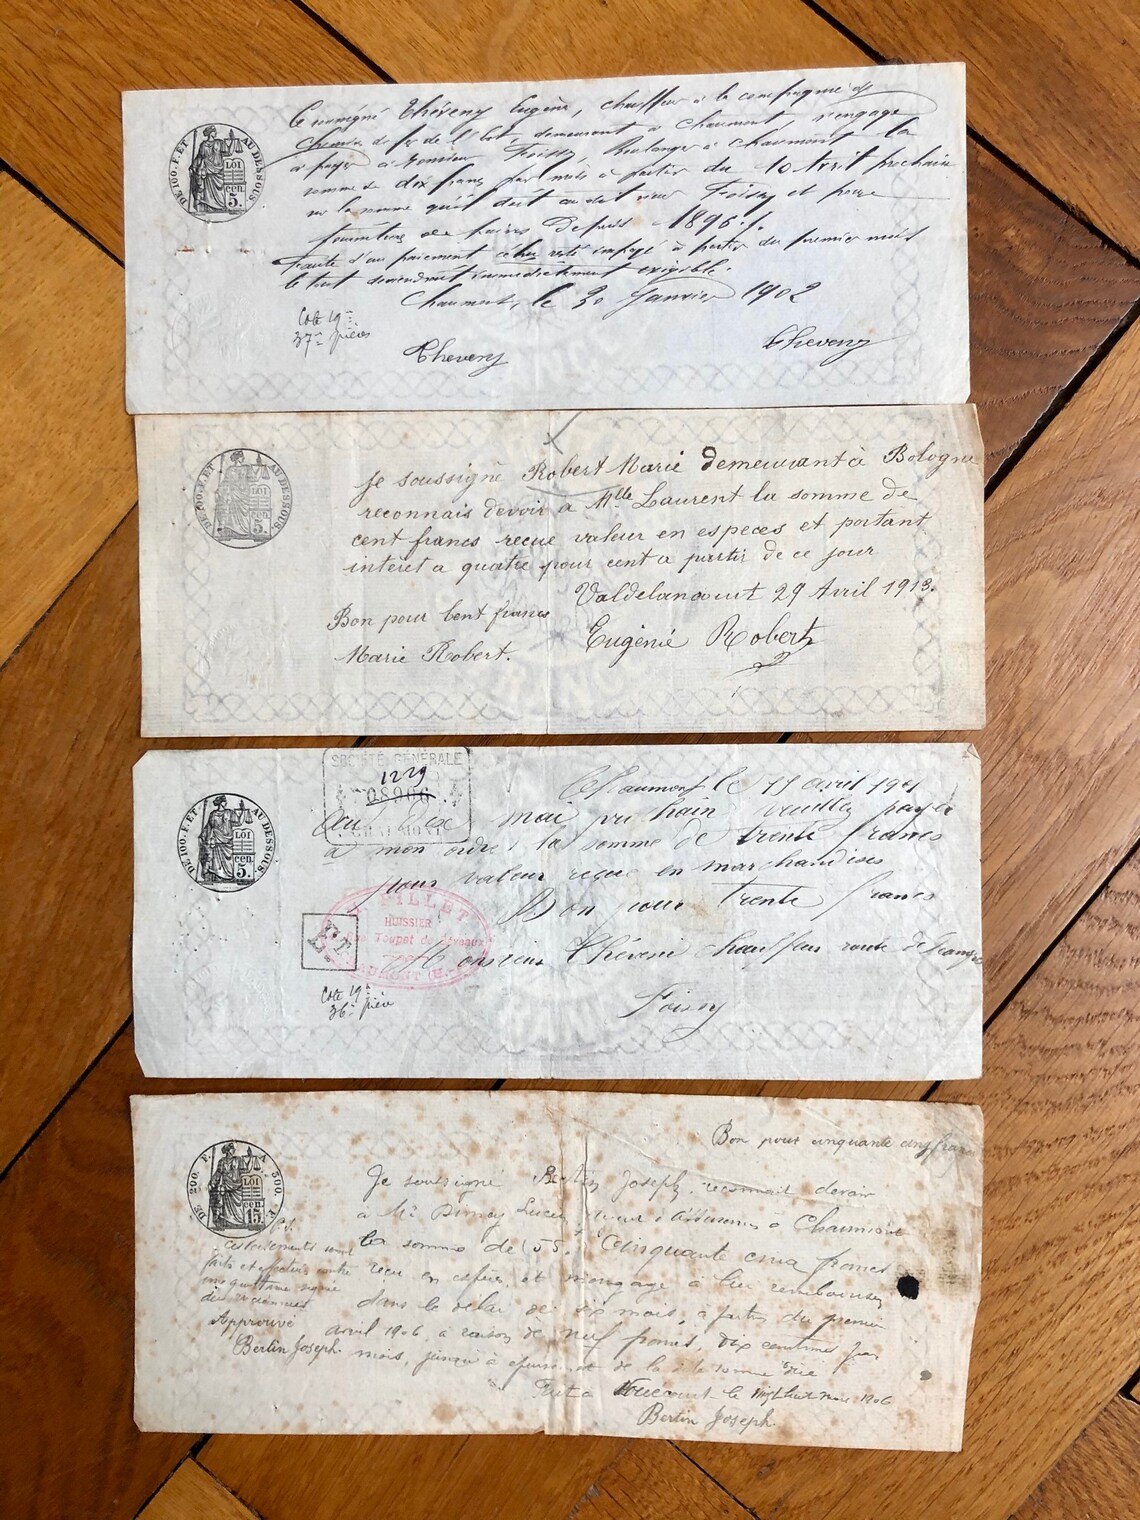 DE 100. F. ET AU DESSOUS.
LOI
cen.
5.
Le soussigné Théveny Eugène, chauffeur à la compagnie des
Chemins de fer de l'Est, demeurant à Chaumont, s'engage
à payer à Monsieur Foissy, Boulanger à Chaumont la
somme de dix francs par mois à partir du 10 Avril prochain
sur la somme qu'il doit au dit sieur Foissy et pour
fourniture de pains depuis 1896.
Faute d'un paiement à partir du premier mois
le tout deviendrait immédiatement exigible.
Chaumont, le 30 Janvier 1902
Cote 19e
37e pièce
Theveny
Theveny
DE 100. F. ET AU DESSOUS.
LOI
cen.
5.
Je soussigné Robert Marie demeurant à Bologne
reconnais devoir a Mlle Laurent la somme de
cent francs reçue valeur en especes et portant
intéret a quatre pour cent a partir de ce jour
Valdelancourt 29 Avril 1913.
Bon pour Cent francs
Eugénie Robert
Marie Robert.
FRANC
DE 100. F. ET AU DESSOUS.
LOI
cen.
5.
SOCIÉTÉ GÉNÉRALE
1229
08906
CHAUMONT
Chaumont le 11 avril 1901
Au dix mai prochain veuillez payer
à mon ordre la somme de trente francs
pour valeur reçue en marchandises
Bon pour trente francs
PILLET
HUISSIER
Rue Toupot de Bévaux
Monsieur Théveni chauffeur route de
Cote 19e
36e pièce
Foissy
DE 200. F. A 300. F.
LOI
cen.
15.
Bon pour cinquante cinq francs
Je soussigné Bertin Joseph, reconnait devoir
à Chaumont
la somme de (55. Cinquante cinq francs
reçu en espèces, et m'engage à lui rembourser
dans le délai de six mois, à partir du premier
avril 1906, à raison de neuf francs, dix centimes par
mois, jusqu'à de la dite somme
Fait à le vingt huit mars 1906
Bertin Joseph
P.S.
Ces versements sont
faits et contre
une quittance signée
Approuvé
Bertin Joseph